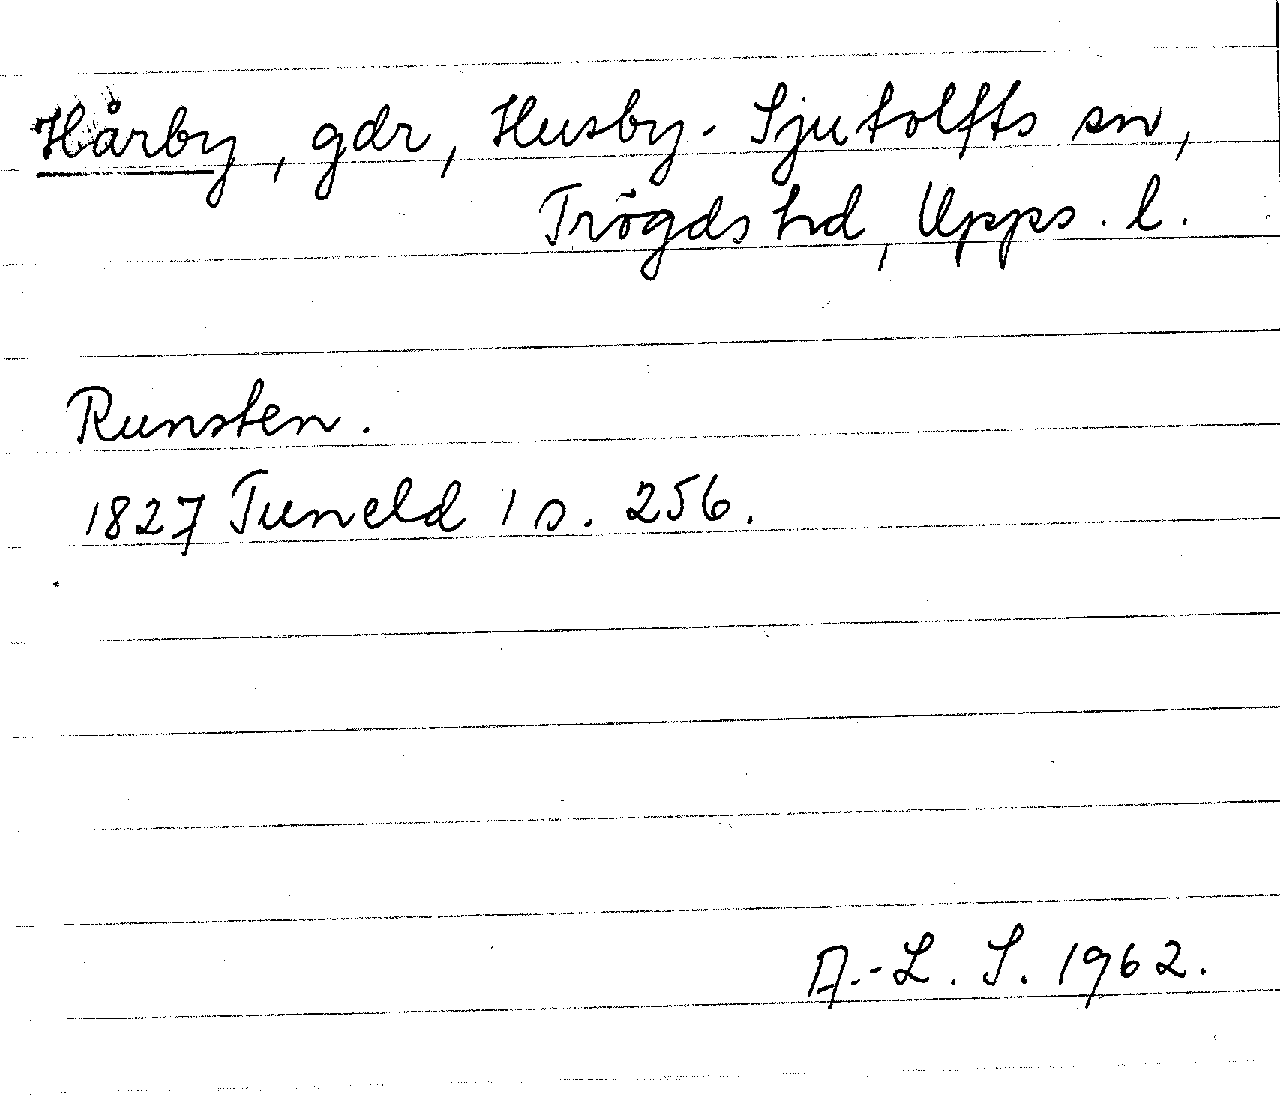 Hårby, gdr, Husby-Sjutolfts sn,
Trögds hd, Upps. l.
Runsten.
1827 Tuneld 1 s. 256.
A.-L. S. 1962.